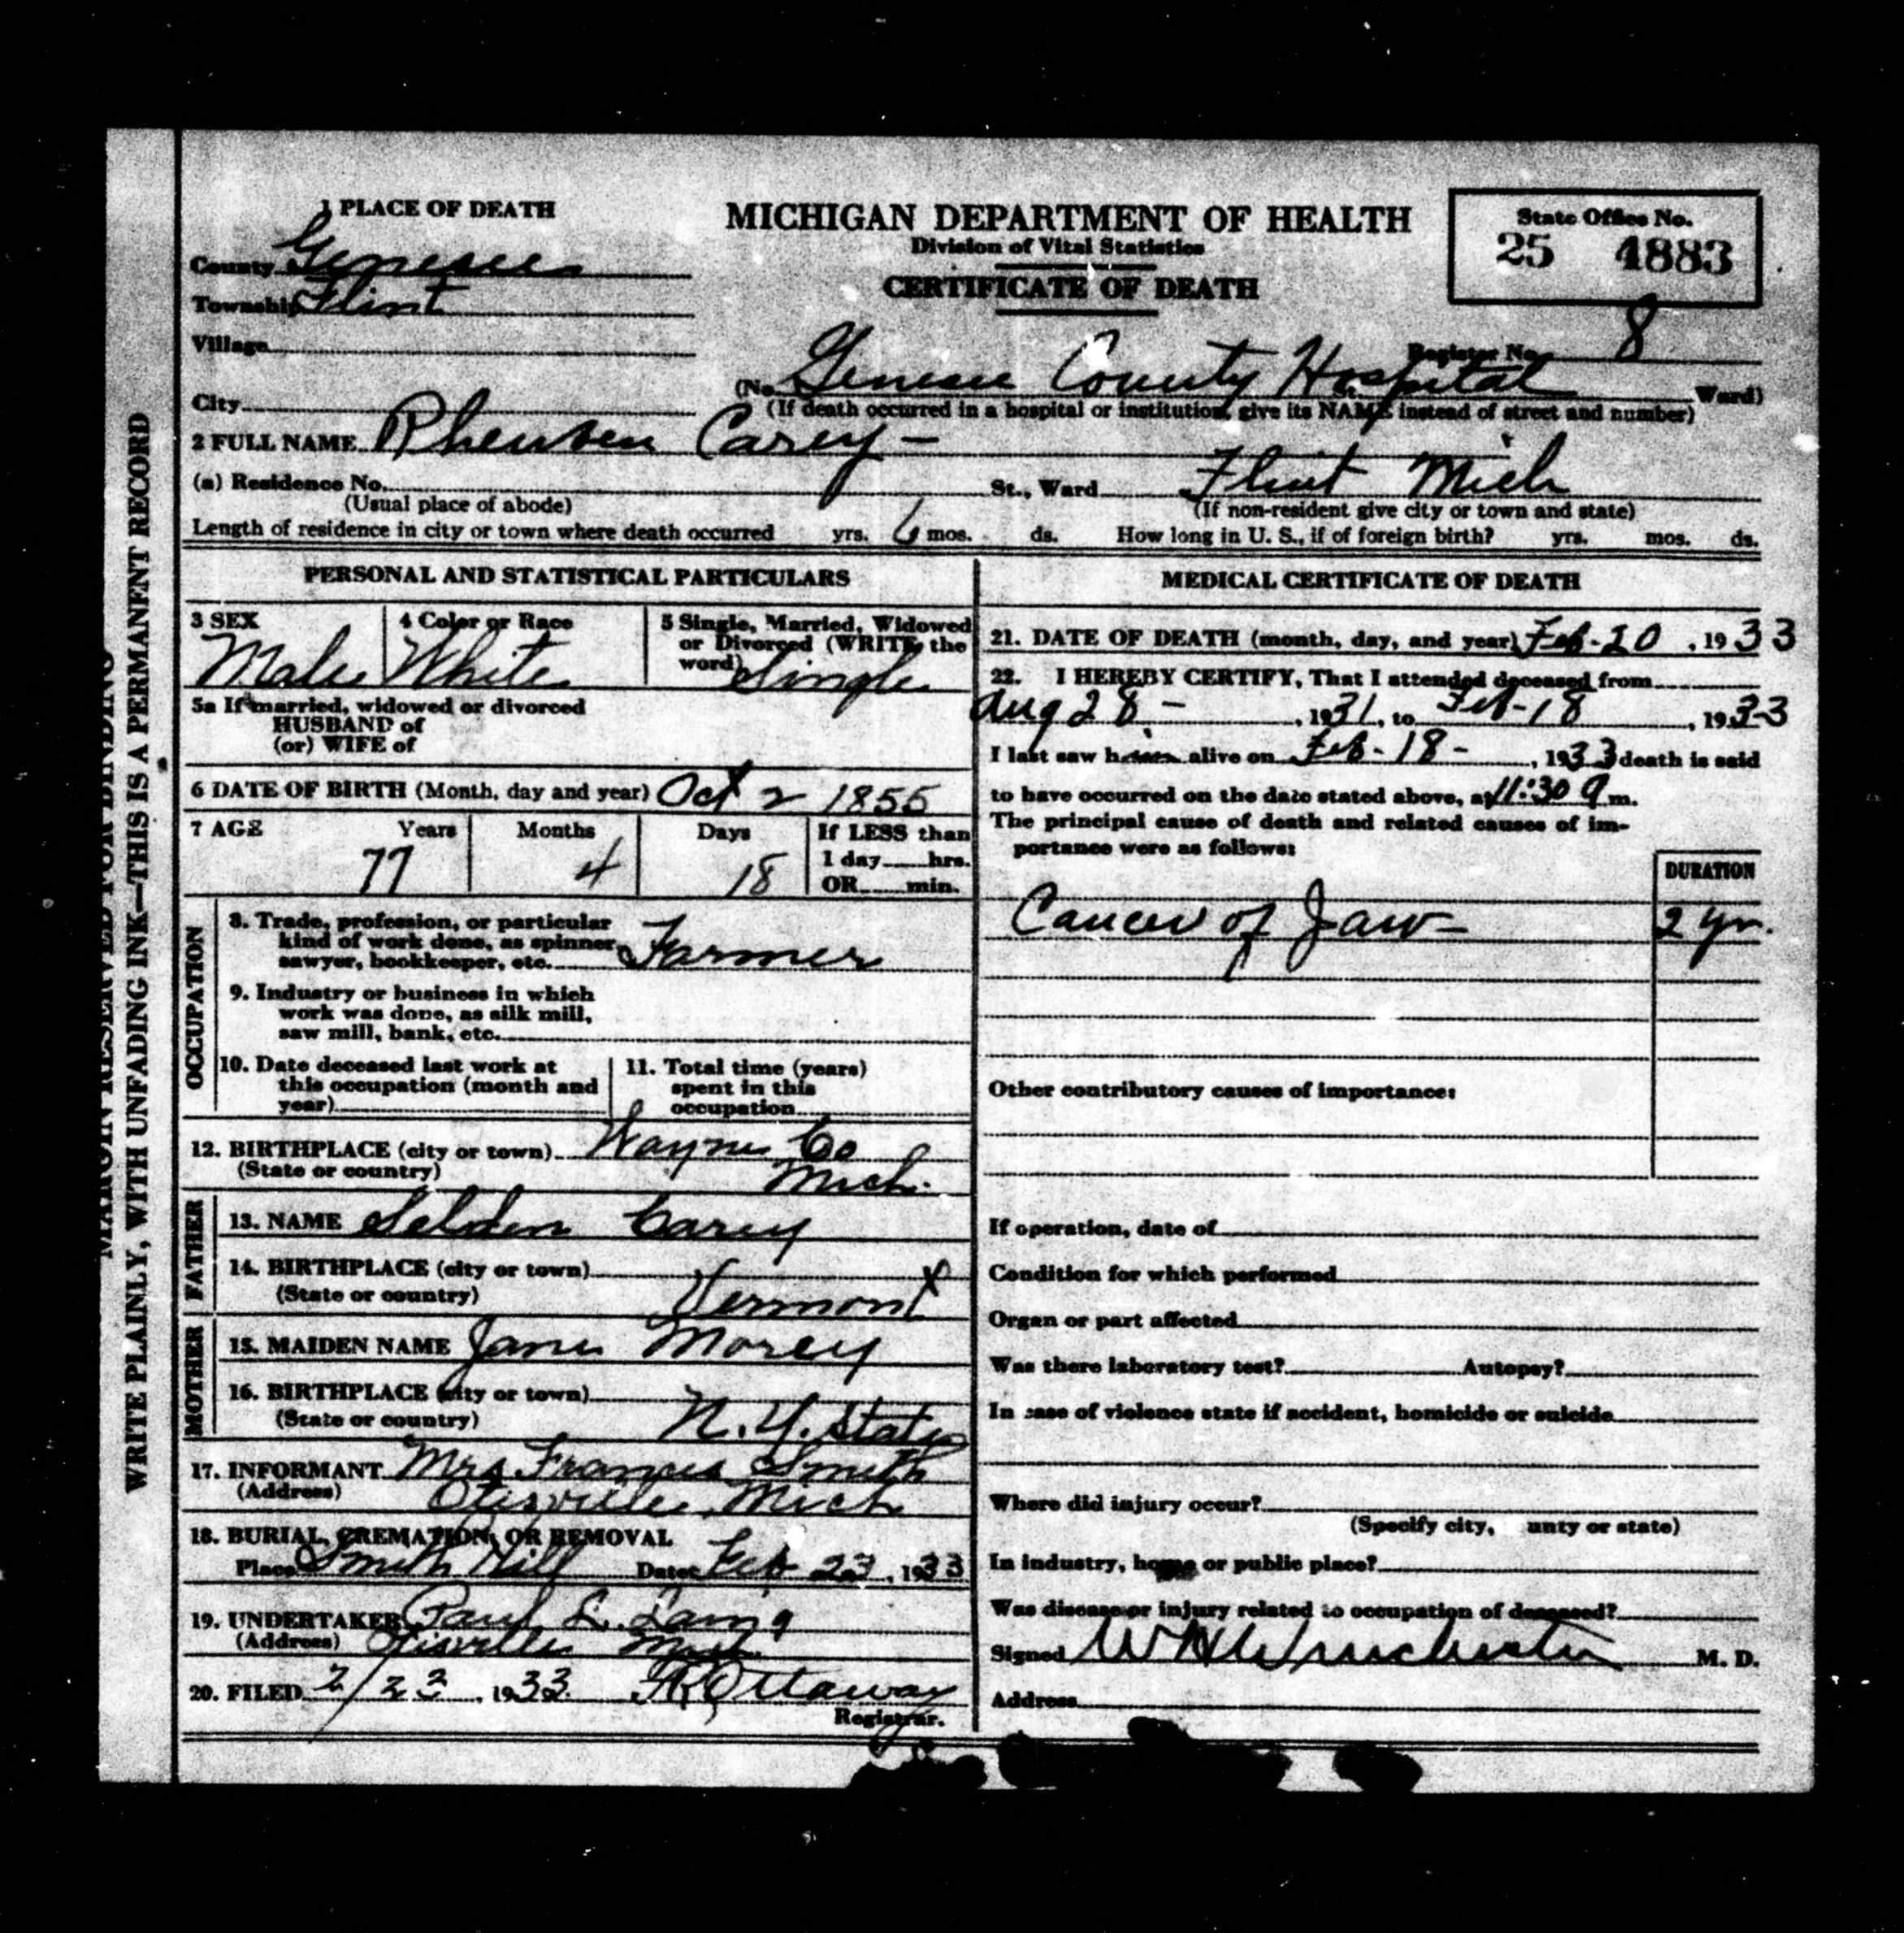 1 PLACE OF DEATH
County Genesee
Township Flint
Village
City
MICHIGAN DEPARTMENT OF HEALTH
Division of Vital Statistics
CERTIFICATE OF DEATH
State Office No.
25 4883
Register No. 8
(No. Genesee County Hospital St. Ward)
(If death occurred in a hospital or institution, give its NAME instead of street and number)
2 FULL NAME Rheuben Carey -
(a) Residence No. St., Ward Flint Mich
(Usual place of abode) (If non-resident give city or town and state)
Length of residence in city or town where death occurred yrs. 6 mos. ds. How long in U. S., if of foreign birth? yrs. mos. ds.
PERSONAL AND STATISTICAL PARTICULARS
3 SEX 4 Color or Race 5 Single, Married, Widowed
or Divorced (WRITE the
word)
Male White Single
5a If married, widowed or divorced
HUSBAND of
(or) WIFE of
6 DATE OF BIRTH (Month, day and year) Oct 2 1855
7 AGE Years Months Days If LESS than
77 4 18 1 day hrs.
OR min.
OCCUPATION
8. Trade, profession, or particular
kind of work done, as spinner,
sawyer, bookkeeper, etc. Farmer
9. Industry or business in which
work was done, as silk mill,
saw mill, bank, etc.
10. Date deceased last work at
this occupation (month and
year)
11. Total time (years)
spent in this
occupation
12. BIRTHPLACE (city or town) Wayne Co
(State or country) Mich.
FATHER
13. NAME Selden Carey
14. BIRTHPLACE (city or town)
(State or country) Vermont
MOTHER
15. MAIDEN NAME Jane Morey
16. BIRTHPLACE (city or town)
(State or country) N. Y. State
17. INFORMANT Mrs Frances Smith
(Address) Otisville Mich
18. BURIAL, CREMATION, OR REMOVAL
Place Smith Hill Date Feb 23, 1933
19. UNDERTAKER Paul L. Laing
(Address) Otisville Mich.
20. FILED 2/23, 1933 Ottaway
Registrar.
MEDICAL CERTIFICATE OF DEATH
21. DATE OF DEATH (month, day, and year) Feb-20, 1933
22. I HEREBY CERTIFY, That I attended deceased from
Aug 28 -, 1931, to Feb-18, 1933
I last saw him alive on Feb-18-, 1933 death is said
to have occurred on the date stated above, at 11:30 a m.
The principal cause of death and related causes of im-
portance were as follows:
DURATION
Cancer of Jaw - 2 yr.
Other contributory causes of importance:
If operation, date of
Condition for which performed
Organ or part affected
Was there laboratory test? Autopsy?
In case of violence state if accident, homicide or suicide
Where did injury occur?
(Specify city, unty or state)
In industry, home or public place?
Was disease or injury related to occupation of deceased?
Signed W H Winchester M. D.
Address
MARGIN RESERVED FOR BINDING
WRITE PLAINLY, WITH UNFADING INK—THIS IS A PERMANENT RECORD